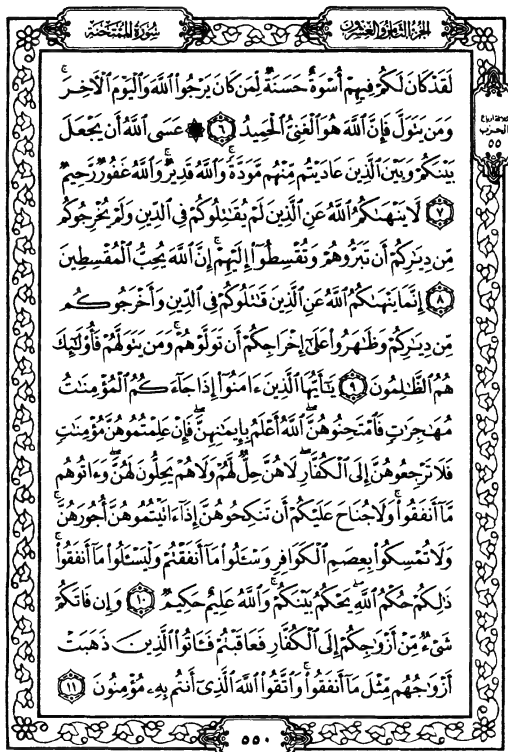 سُورَةُ الْمُمْتَحنَةِ
الجُزْءُ الثَّامِنُ وَالعِشْرُونَ
لَقَدْ كَانَ لَكُمْ فِيهِمْ أُسْوَةٌ حَسَنَةٌ لِّمَن كَانَ يَرْجُوا۟ ٱللَّهَ وَٱلْيَوْمَ ٱلْـَٔاخِرَ ۚ
وَمَن يَتَوَلَّ فَإِنَّ ٱللَّهَ هُوَ ٱلْغَنِىُّ ٱلْحَمِيدُ ٦ ۞ عَسَى ٱللَّهُ أَن يَجْعَلَ
بَيْنَكُمْ وَبَيْنَ ٱلَّذِينَ عَادَيْتُم مِّنْهُم مَّوَدَّةً ۚ وَٱللَّهُ قَدِيرٌ ۚ وَٱللَّهُ غَفُورٌ رَّحِيمٌ
٧ لَّا يَنْهَىٰكُمُ ٱللَّهُ عَنِ ٱلَّذِينَ لَمْ يُقَـٰتِلُوكُمْ فِى ٱلدِّينِ وَلَمْ يُخْرِجُوكُم
مِّن دِيَـٰرِكُمْ أَن تَبَرُّوهُمْ وَتُقْسِطُوٓا۟ إِلَيْهِمْ ۚ إِنَّ ٱللَّهَ يُحِبُّ ٱلْمُقْسِطِينَ
٨ إِنَّمَا يَنْهَىٰكُمُ ٱللَّهُ عَنِ ٱلَّذِينَ قَـٰتَلُوكُمْ فِى ٱلدِّينِ وَأَخْرَجُوكُم
مِّن دِيَـٰرِكُمْ وَظَـٰهَرُوا۟ عَلَىٰٓ إِخْرَاجِكُمْ أَن تَوَلَّوْهُمْ ۚ وَمَن يَتَوَلَّهُمْ فَأُو۟لَـٰٓئِكَ
هُمُ ٱلظَّـٰلِمُونَ ٩ يَـٰٓأَيُّهَا ٱلَّذِينَ ءَامَنُوٓا۟ إِذَا جَآءَكُمُ ٱلْمُؤْمِنَـٰتُ
مُهَـٰجِرَٰتٍ فَٱمْتَحِنُوهُنَّ ۖ ٱللَّهُ أَعْلَمُ بِإِيمَـٰنِهِنَّ ۖ فَإِنْ عَلِمْتُمُوهُنَّ مُؤْمِنَـٰتٍ
فَلَا تَرْجِعُوهُنَّ إِلَى ٱلْكُفَّارِ ۖ لَا هُنَّ حِلٌّ لَّهُمْ وَلَا هُمْ يَحِلُّونَ لَهُنَّ ۖ وَءَاتُوهُم
مَّآ أَنفَقُوا۟ ۚ وَلَا جُنَاحَ عَلَيْكُمْ أَن تَنكِحُوهُنَّ إِذَآ ءَاتَيْتُمُوهُنَّ أُجُورَهُنَّ ۚ
وَلَا تُمْسِكُوا۟ بِعِصَمِ ٱلْكَوَافِرِ وَسْـَٔلُوا۟ مَآ أَنفَقْتُمْ وَلْيَسْـَٔلُوا۟ مَآ أَنفَقُوا۟ ۚ
ذَٰلِكُمْ حُكْمُ ٱللَّهِ ۖ يَحْكُمُ بَيْنَكُمْ ۚ وَٱللَّهُ عَلِيمٌ حَكِيمٌ ١٠ وَإِن فَاتَكُمْ
شَىْءٌ مِّنْ أَزْوَٰجِكُمْ إِلَى ٱلْكُفَّارِ فَعَاقَبْتُمْ فَـَٔاتُوا۟ ٱلَّذِينَ ذَهَبَتْ
أَزْوَٰجُهُم مِّثْلَ مَآ أَنفَقُوا۟ ۚ وَٱتَّقُوا۟ ٱللَّهَ ٱلَّذِىٓ أَنتُم بِهِۦ مُؤْمِنُونَ ١١
الحزب
٥٥
٥٥٠